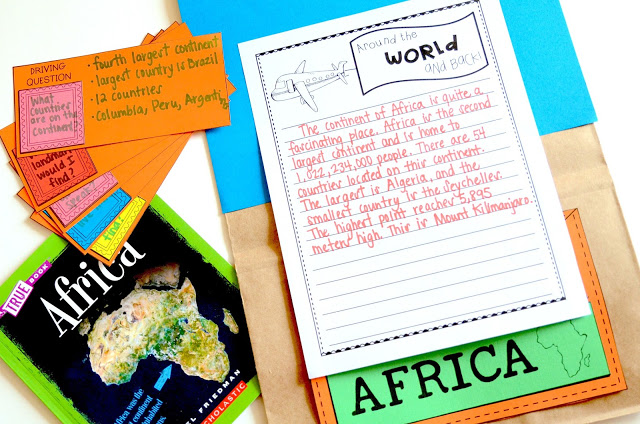 DRIVING QUESTION
What countries are on the continent?
• fourth largest continent
• largest country is Brazil
• 12 countries
• Columbia, Peru, Argentina
landmarks would I find?
find?
Around the
WORLD
and Back!
The continent of Africa is quite a
fascinating place. Africa is the second
largest continent and is home to
1,022,234,000 people. There are 54
countries located on this continent.
The largest is Algeria, and the
smallest country is the Seychelles.
The highest point reaches 5,895
meters high. This is Mount Kilimanjaro.
A TRUE BOOK
Africa
Africa was the
continent
inhabited
EL FRIEDMAN
SCHOLASTIC
AFRICA